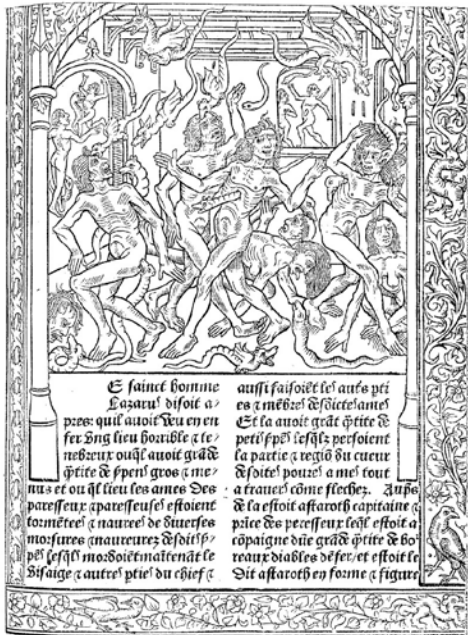 E sainct homme
Lazarus disoit a-
pres: quil auoit veu en en
fer vng lieu horrible ⁊ te-
nebreux ouql̃ auoit grãde
q̃tite de s̃pens gros ⁊ me-
nus et ou q̃l lieu les ames des
paresseux ⁊ paresseuses estoient
tormẽtees ⁊ naurees de diuerses
morsures ⁊
lesq̃lz mordoiẽt maĩtenãt le
visaige ⁊ autres pties du chief ⁊
aussi faisoiẽt les autˢ pti
es ⁊ mẽbres desdictes ames
Et la auoit grãt q̃tite de
petis lesq̃lz persoient
la partie ⁊ regiõ du cueur
desdites poures ames tout
a trauers cõme fleches.
de la estoit astaroth capitaine ⁊
prĩce des pecesseux leq̃l estoit a
cõpaigne dũe grãde q̃tite de bo'
reaux diables dẽfer, et estoit le
dit astaroth en forme ⁊ figure